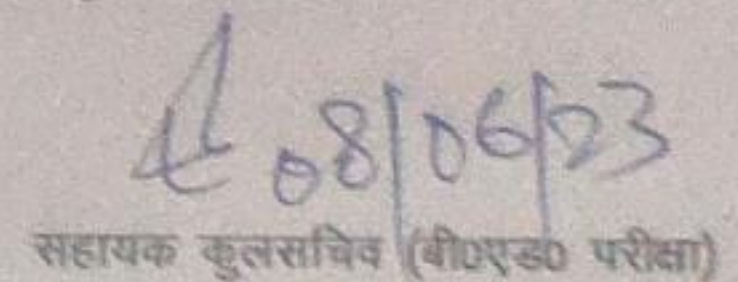 08/06/23
सहायक कुलसचिव (बी०एड० परीक्षा)